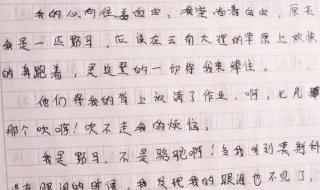 我的心向往着自由,我崇尚着自由,原来
我是一匹野马,应该在云南大理的草原上欢快
的奔跑着,是这里的一切将我束缚住。
他们将我的背上放满了作业,啊,
那个吹啊!吹不走我的烦恼,
我是野马,不是骆驼啊!当我听到莱斯利
没有眼泪的时候,我发现我的眼泪也不见了,